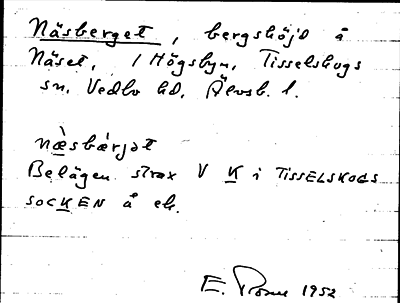 Näsberget, bergshöjd å
Näset, i Högsbyn, Tisselskogs
sn, Vedbo hd, Älvsb. l.
næ̀sbær̀jət
Belägen strax V K i TISSELSKOGS
SOCKEN å ek.
E. 1952